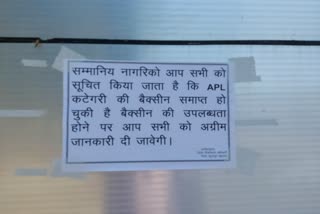 सम्मानिय नागरिको आप सभी को
सूचित किया जाता है कि APL
कटेगरी की बैक्सीन समाप्त हो
चुकी है बैक्सीन की उपलब्धता
होने पर आप सभी को अग्रीम
जानकारी दी जावेगी।